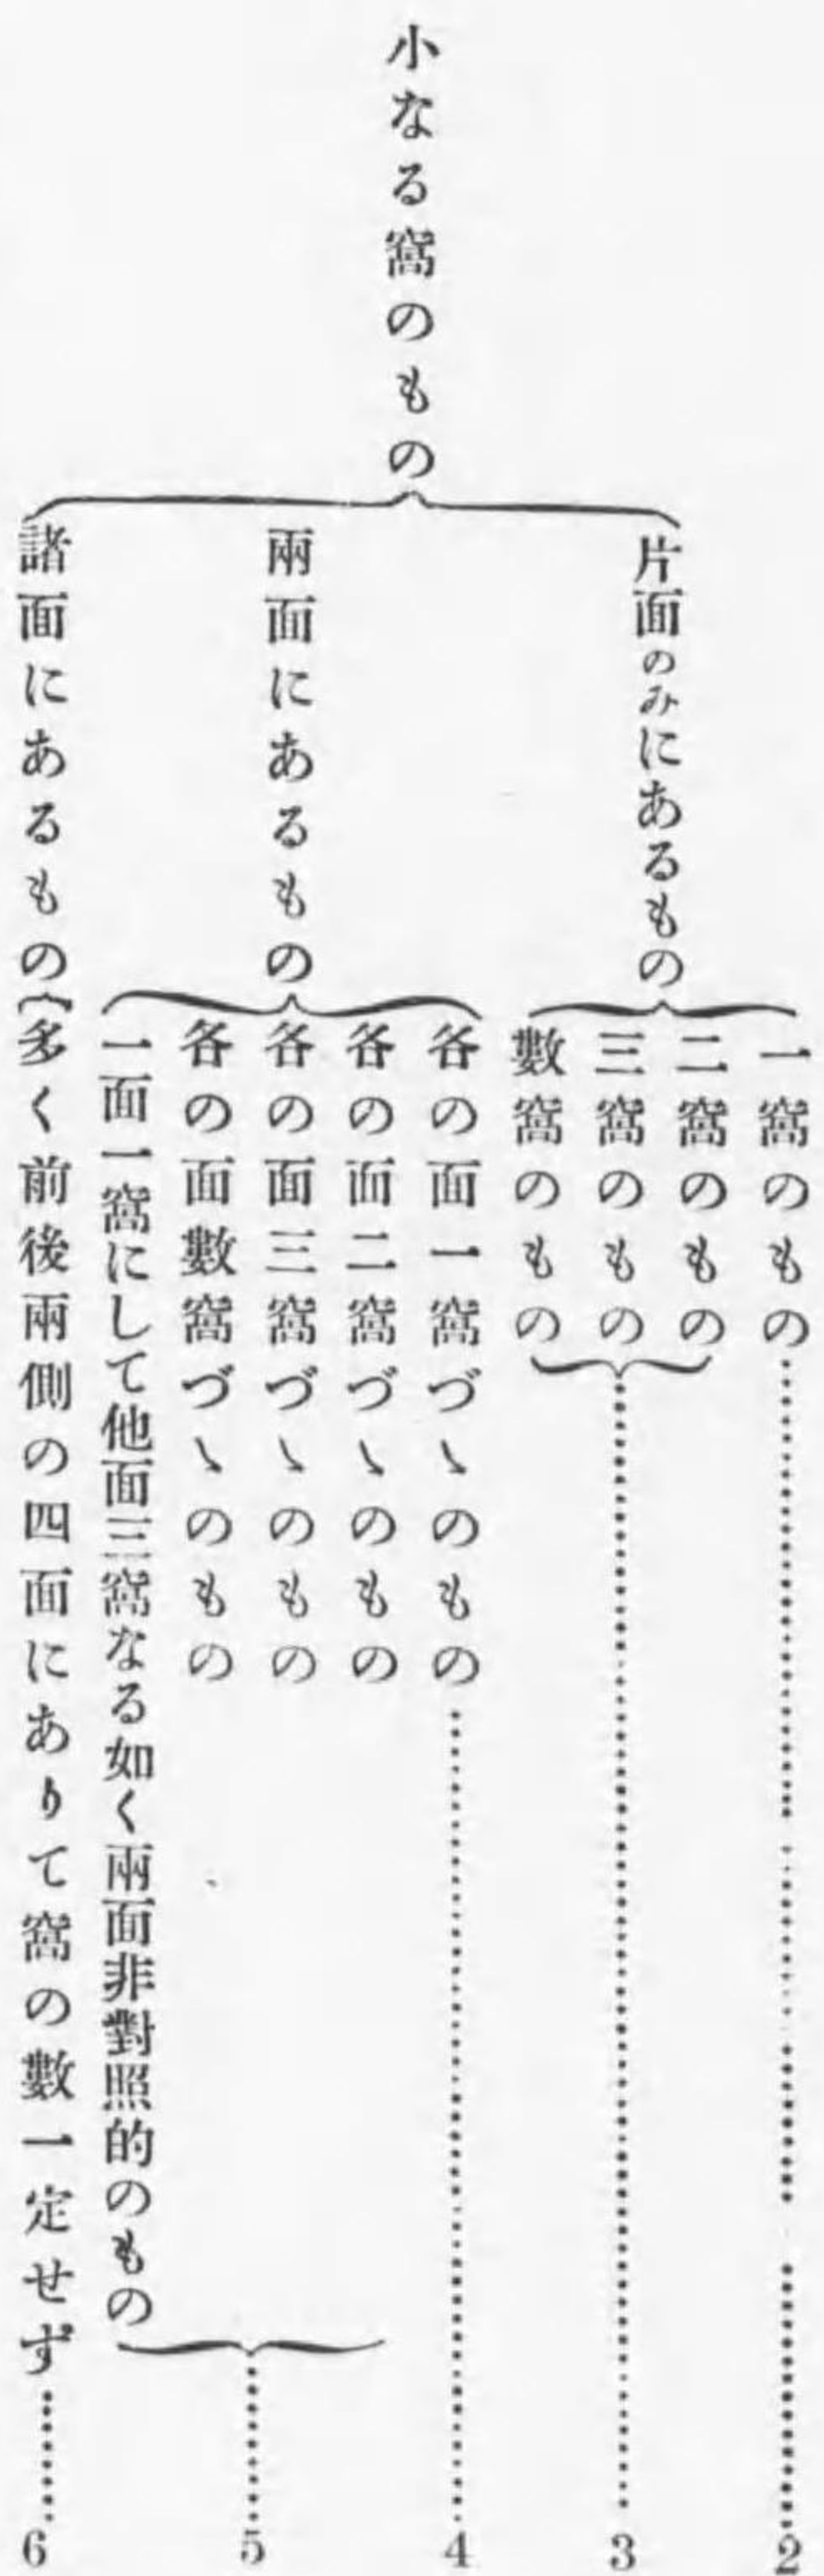 小なる窩のもの
片面のみにあるもの
一窩のもの
2
二窩のもの
三窩のもの
數窩のもの
3
兩面にあるもの
各の面一窩づゝのもの
4
各の面二窩づゝのもの
各の面三窩づゝのもの
各の面數窩づゝのもの
一面一窩にして他面三窩なる如く兩面非對照的のもの
5
諸面にあるもの
多く前後兩側の四面にありて窩の數一定せず
6